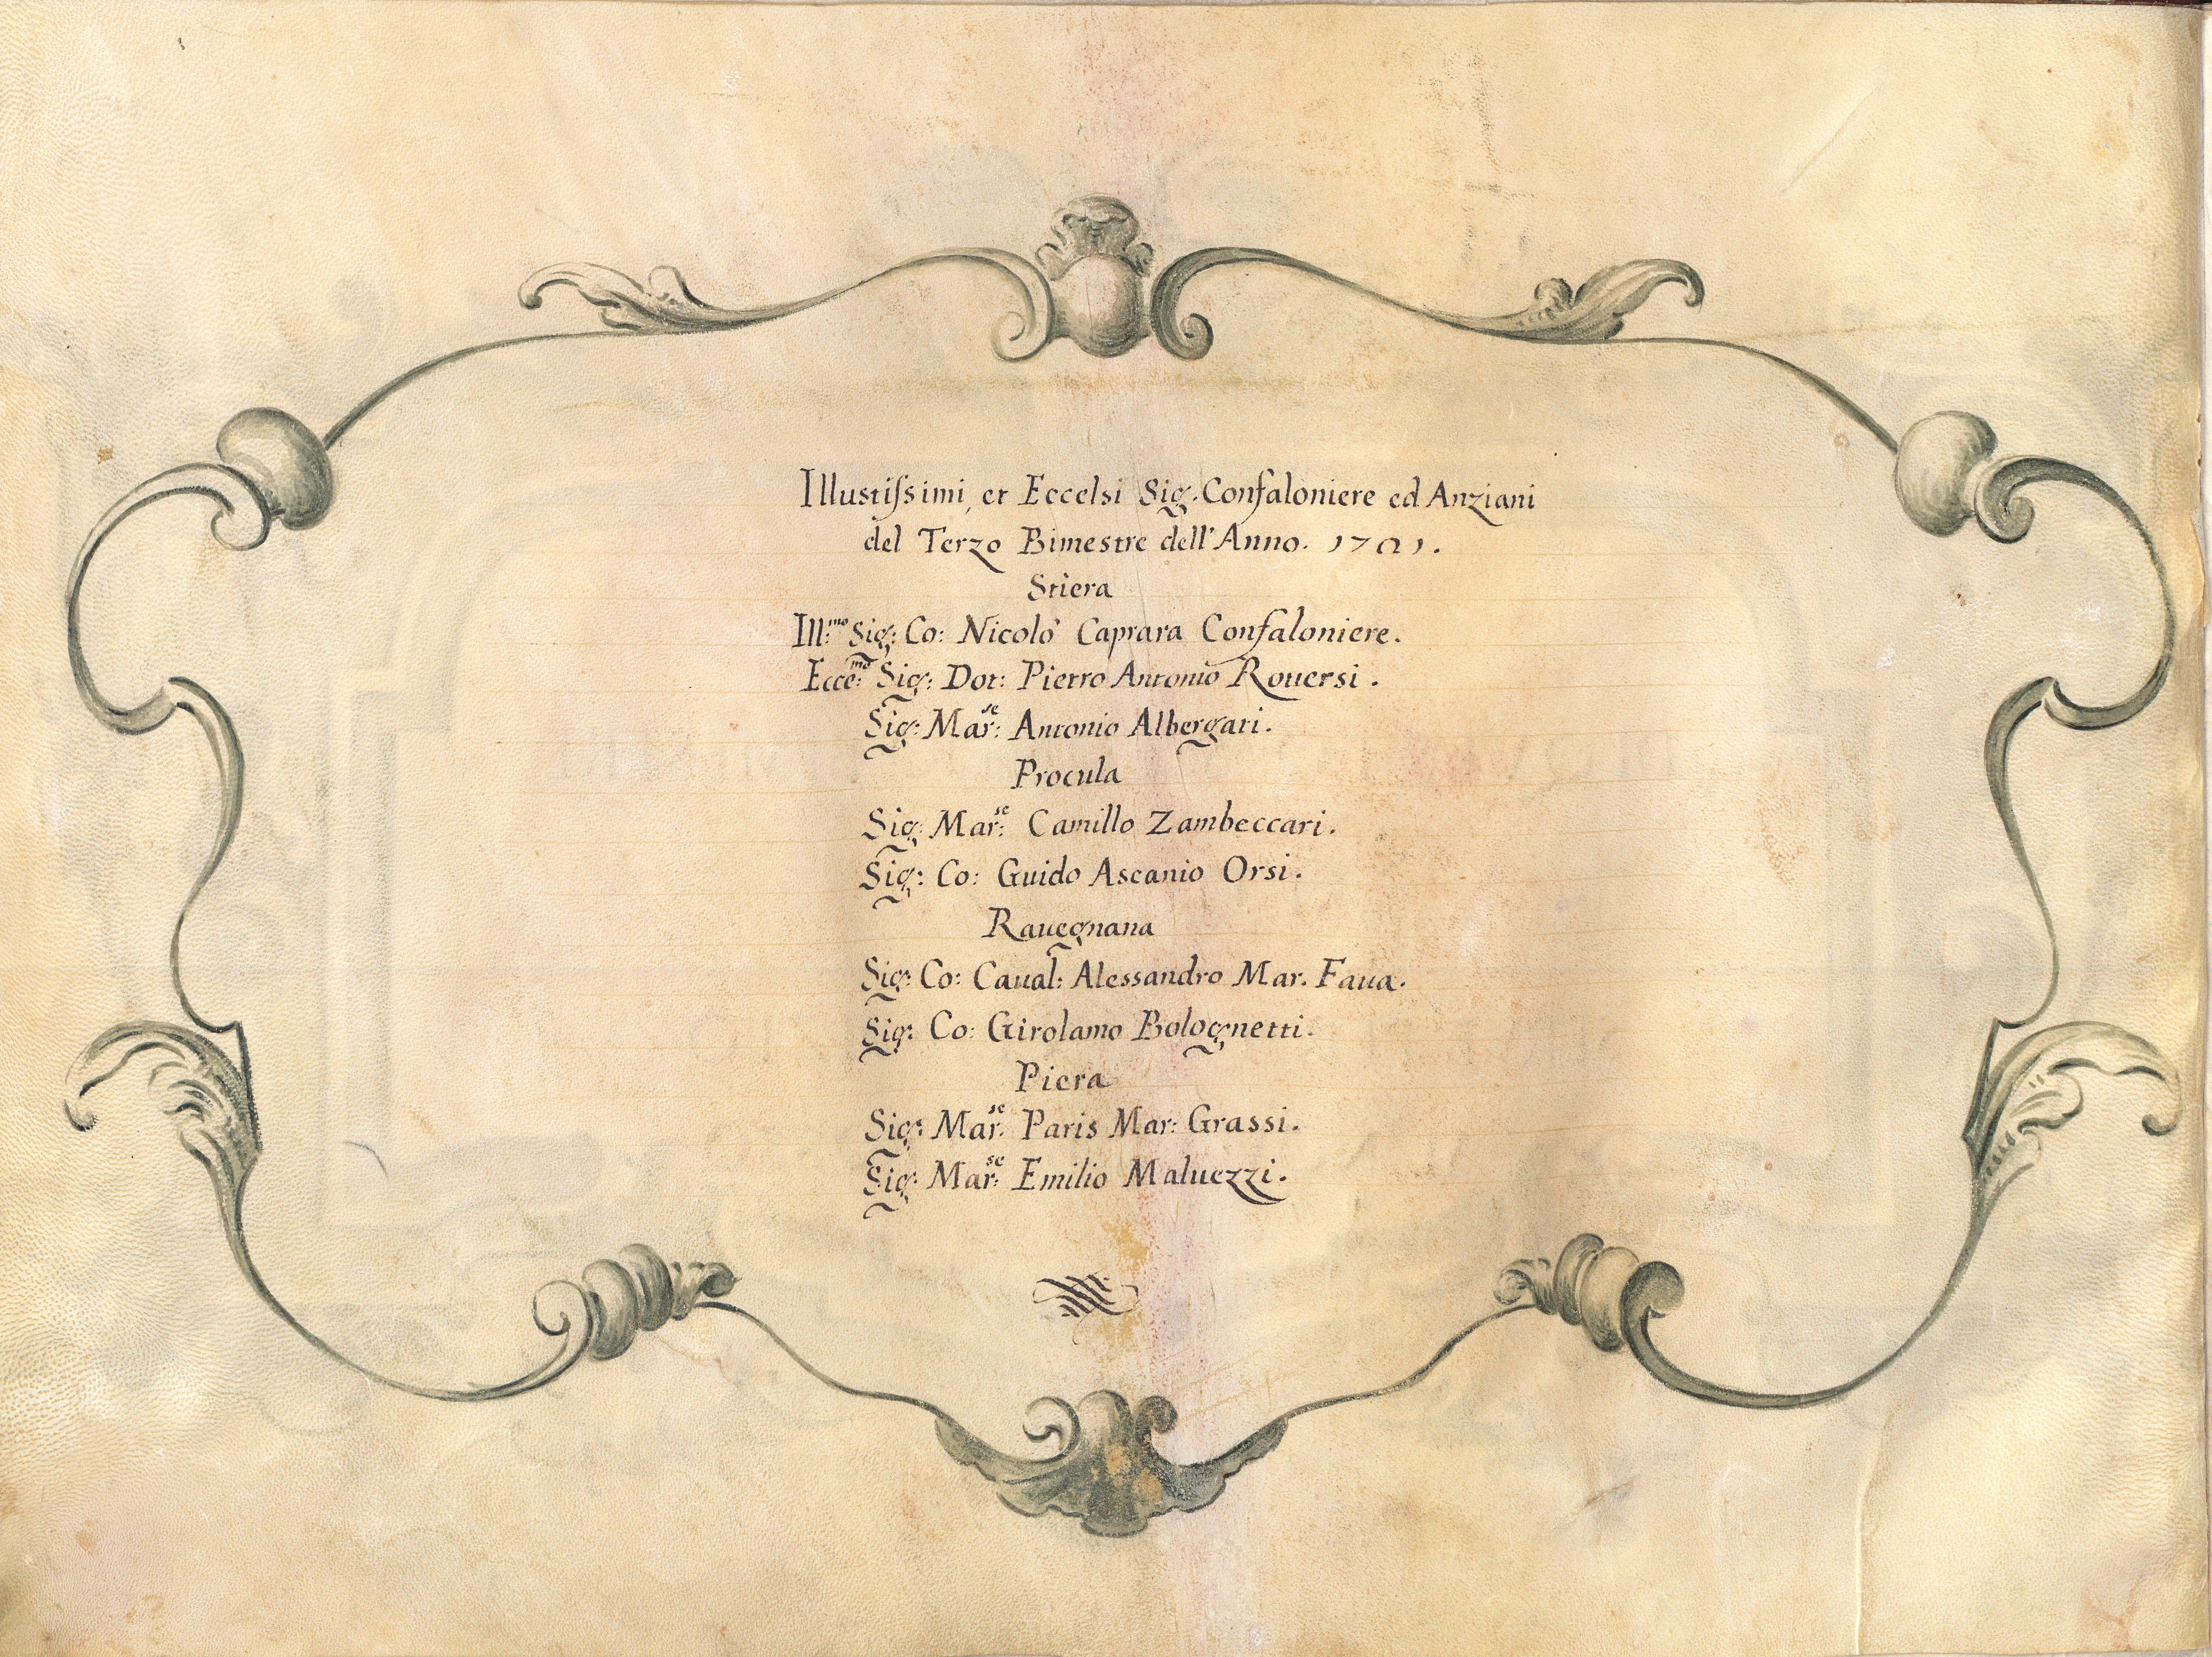 Illustiſsimi, et Eccelsi Sig. Confaloniere ed Anziani
del Terzo Bimestre dell'Anno. 1701.
Stiera
Ill:mo Sig: Co: Nicolò Caprara Confaloniere.
Ecce:mo Sig: Dot: Pietro Antonio Rouersi.
Sig: Mar:se Antonio Albergati.
Procula
Sig: Mar:se Camillo Zambeccari.
Sig: Co: Guido Ascanio Orsi.
Rauegnana
Sig: Co: Caual: Alessandro Mar. Faua.
Sig: Co: Girolamo Bolognetti.
Piera
Sig: Mar:se Paris Mar: Grassi.
Sig: Mar:se Emilio Maluezzi.